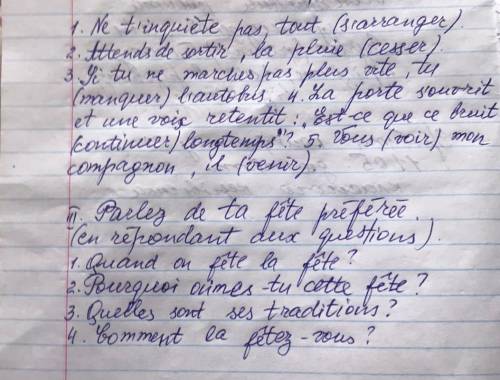 1. Ne t'inquiète pas, tout (s'arranger).
2. Attends de sortir, la pluie (cesser).
3. Si tu ne marches pas plus vite, tu
(manquer) l'autobus. 4. La porte s'ouvrit
et une voix retentit: „Est-ce que ce bruit
(continuer) longtemps"? 5. Vous (voir) mon
compagnon, il (venir)
III. Parlez de ta fête préférée.
(en répondant aux questions).
1. Quand on fête la fête?
2. Pourquoi aimes-tu cette fête?
3. Quelles sont ses traditions?
4. Comment la fêtez-vous?